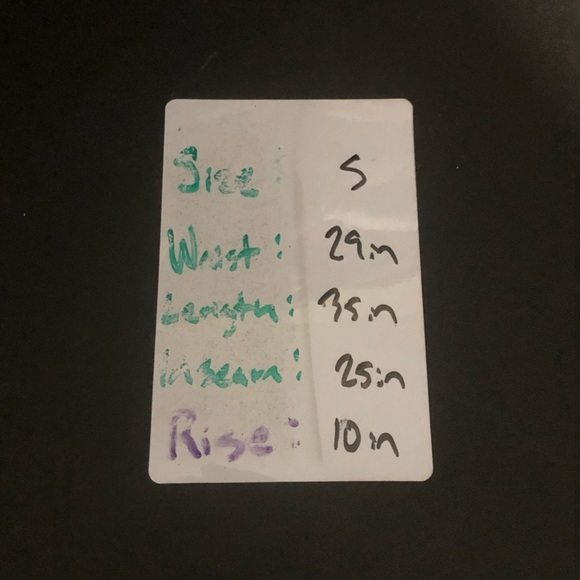 Size: S
Waist: 29in
Length: 35in
Inseam: 25in
Rise: 10in